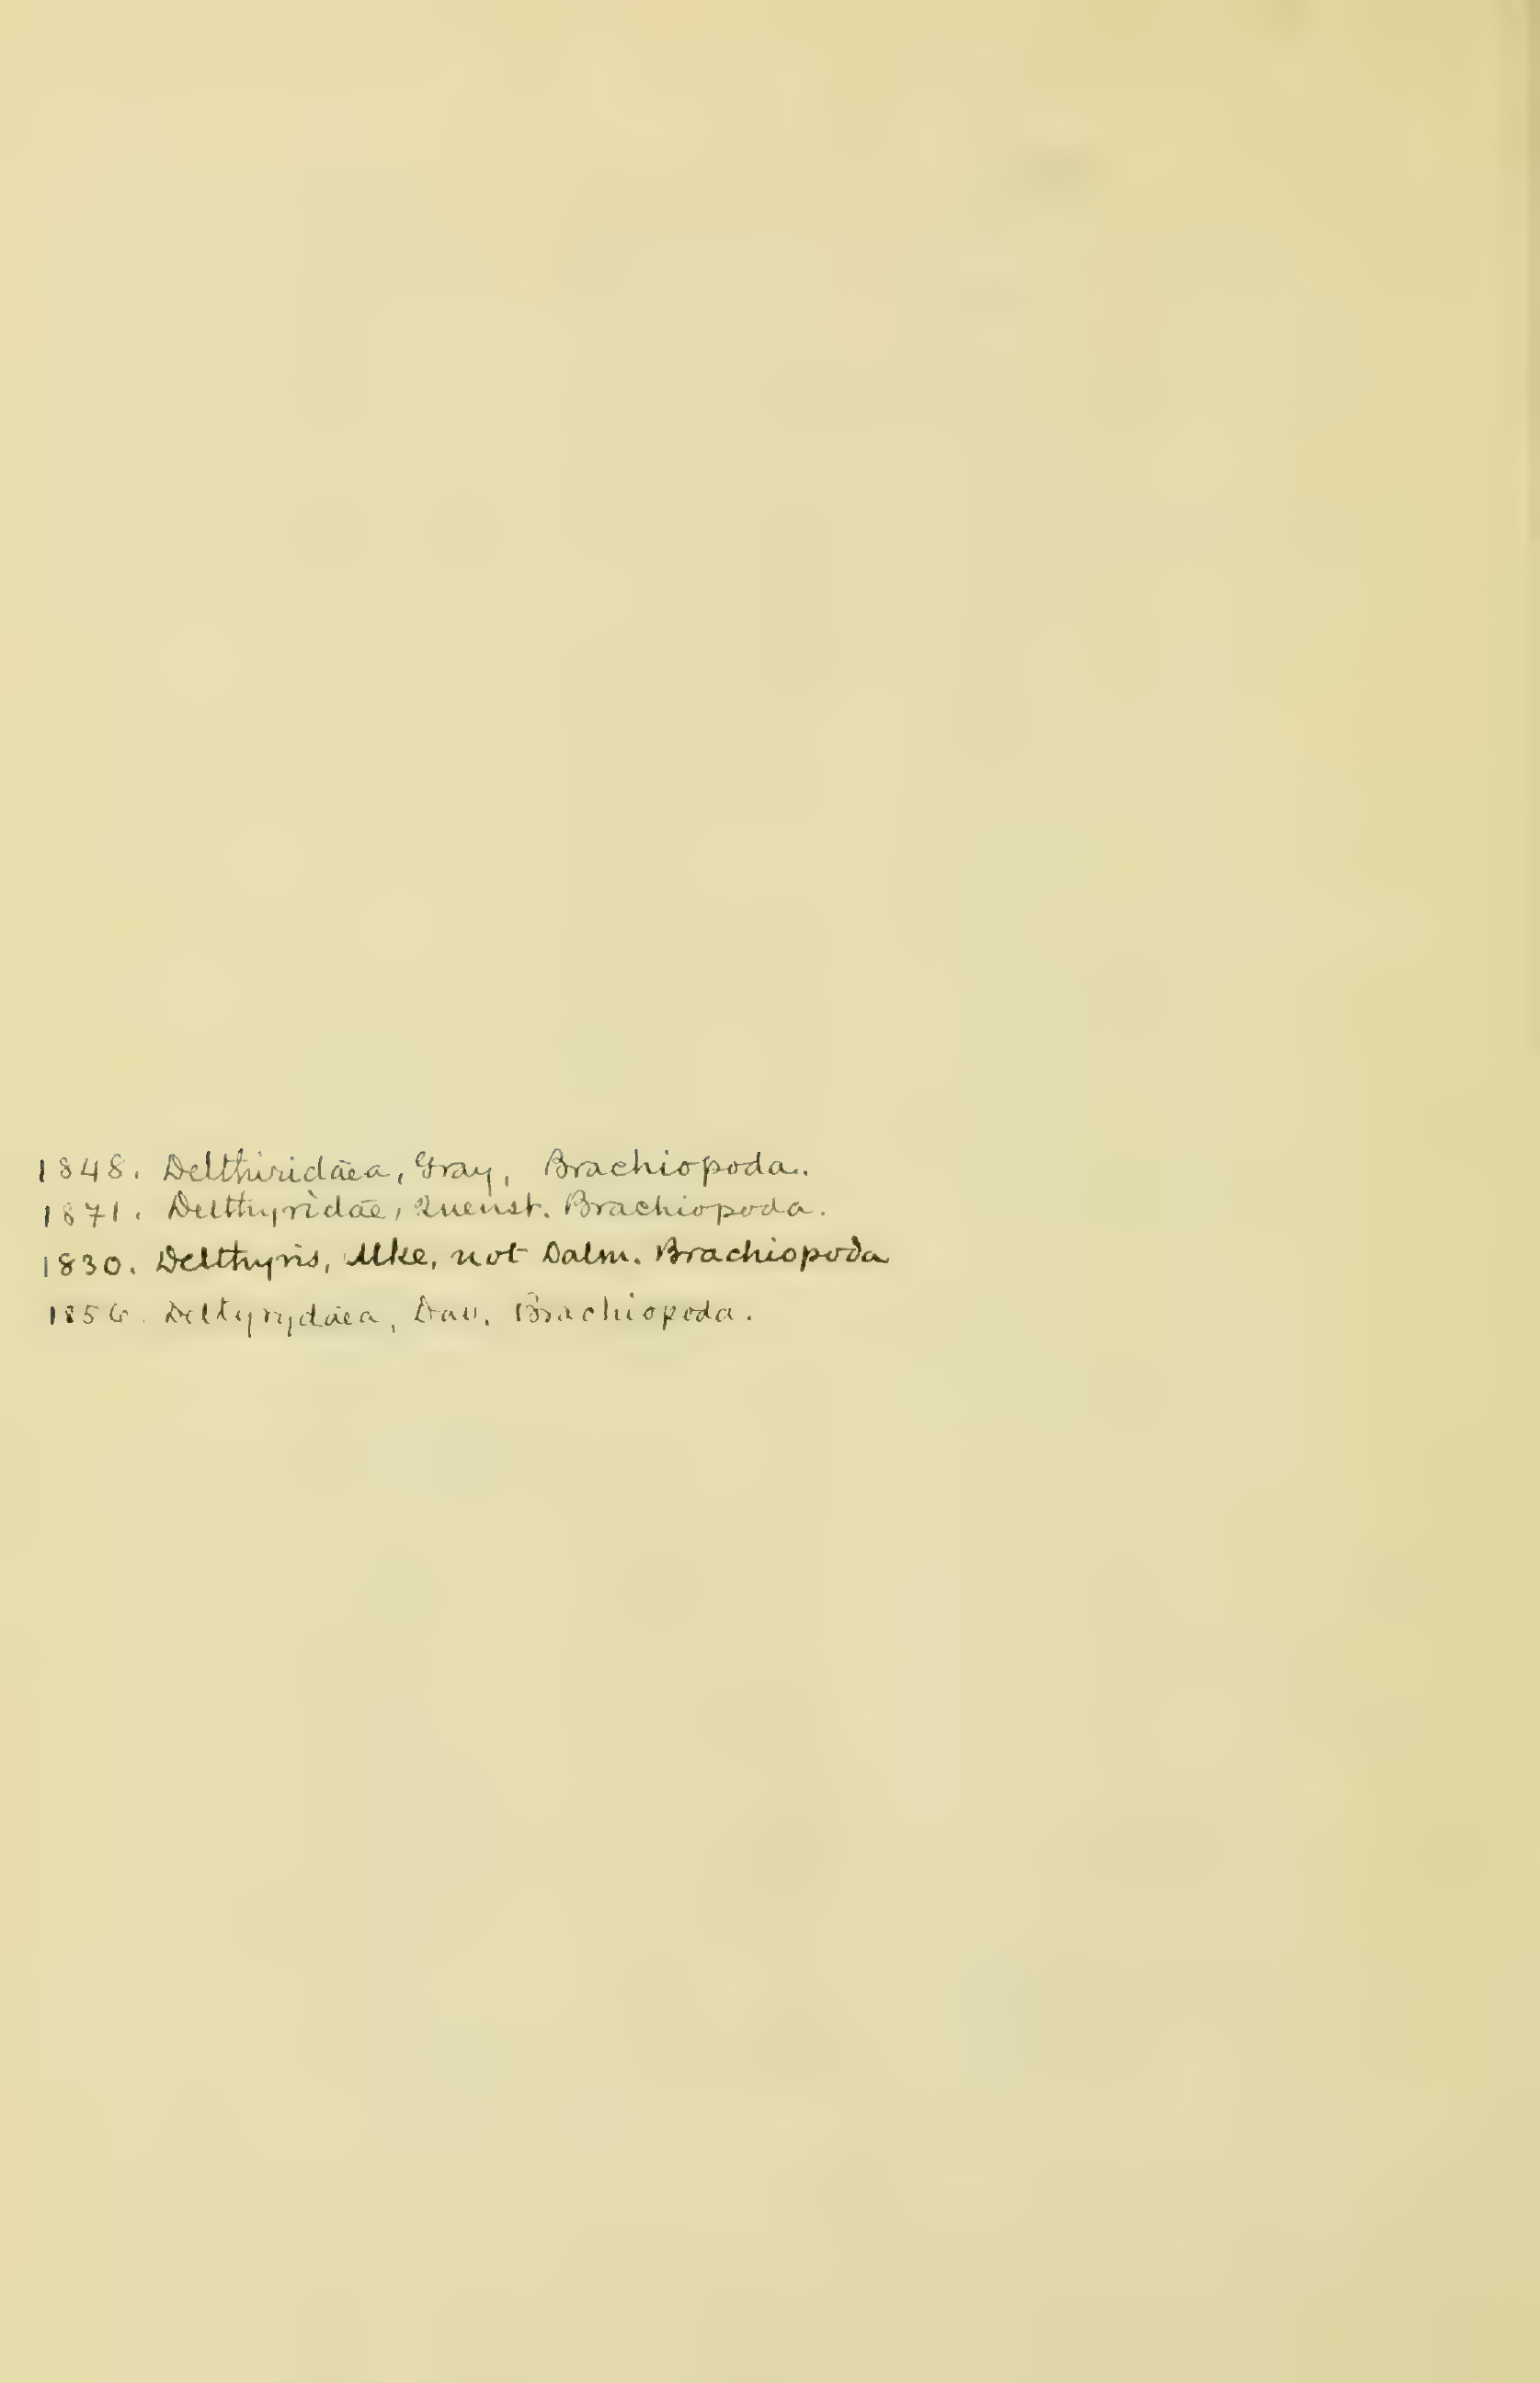 1848. Delthiridæa, Gray, Brachiopoda.
1871. Delthyridæ, Quenst. Brachiopoda.
1830. Delthyris, Mke, not Dalm. Brachiopoda
1856. Deltyrydæa, Dav. Brachiopoda.